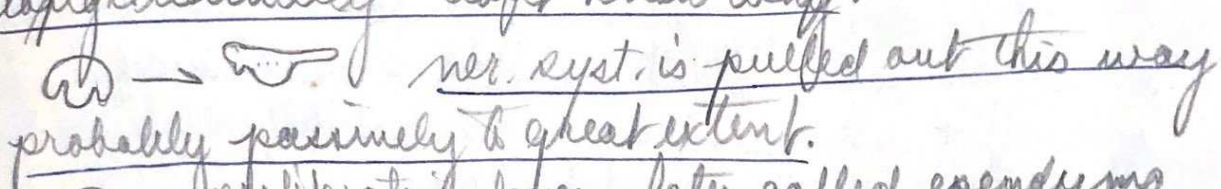 ner. syst. is pulled out this way
probably passively to great extent.
later called ependyma